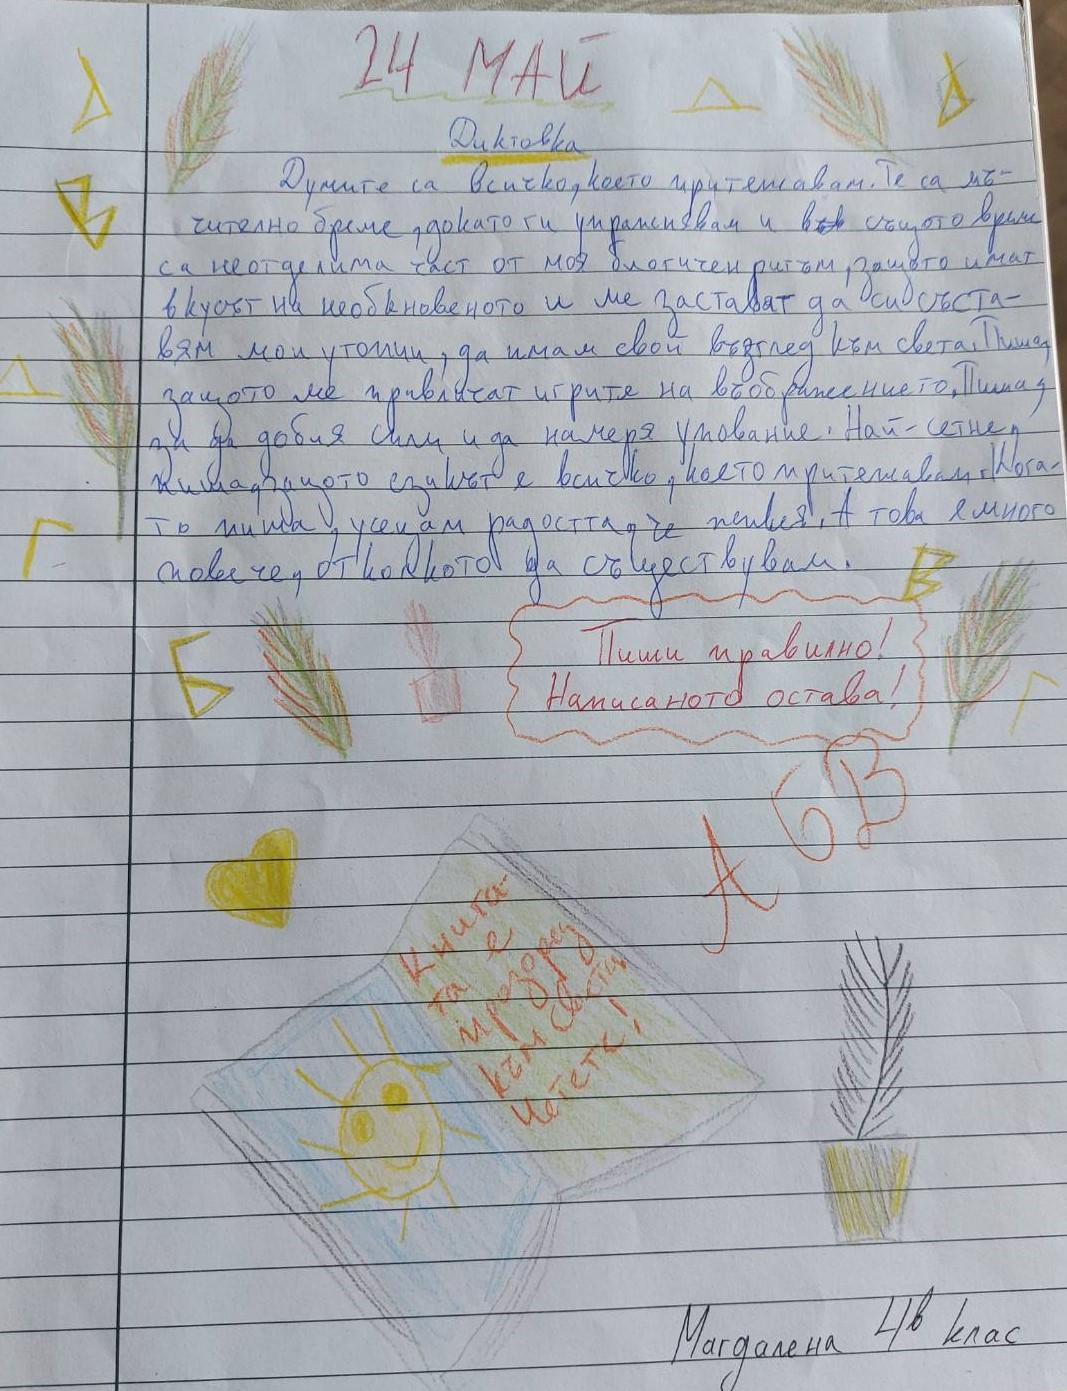 24 МАЙ
Диктовка
Думите са всичко, което притежавам. Те са мъ-
чително бреме, докато ги упражнявам и в същото време
са неотделима част от моя биологичен ритъм, защото имат
вкусът на необкновеното и ме заставят да си съста-
вям мои утопии, да имам свой възглед към света. Пиша,
защото ме привличат игрите на въображението. Пиша,
за да добия сили и да намеря упование. Най-сетне,
пиша, защото езикът е всичко, което притежавам. Кога-
то пиша, усещам радостта, че живея. А това е много
повече, отколкото да съществувам.
Пиши правилно!
Написаното остава!
А Б В
Книга-
та е
прозорец
към света
Четете!
Магдалена 4в клас
А
В
Д
Г
Б
В
Г
Д